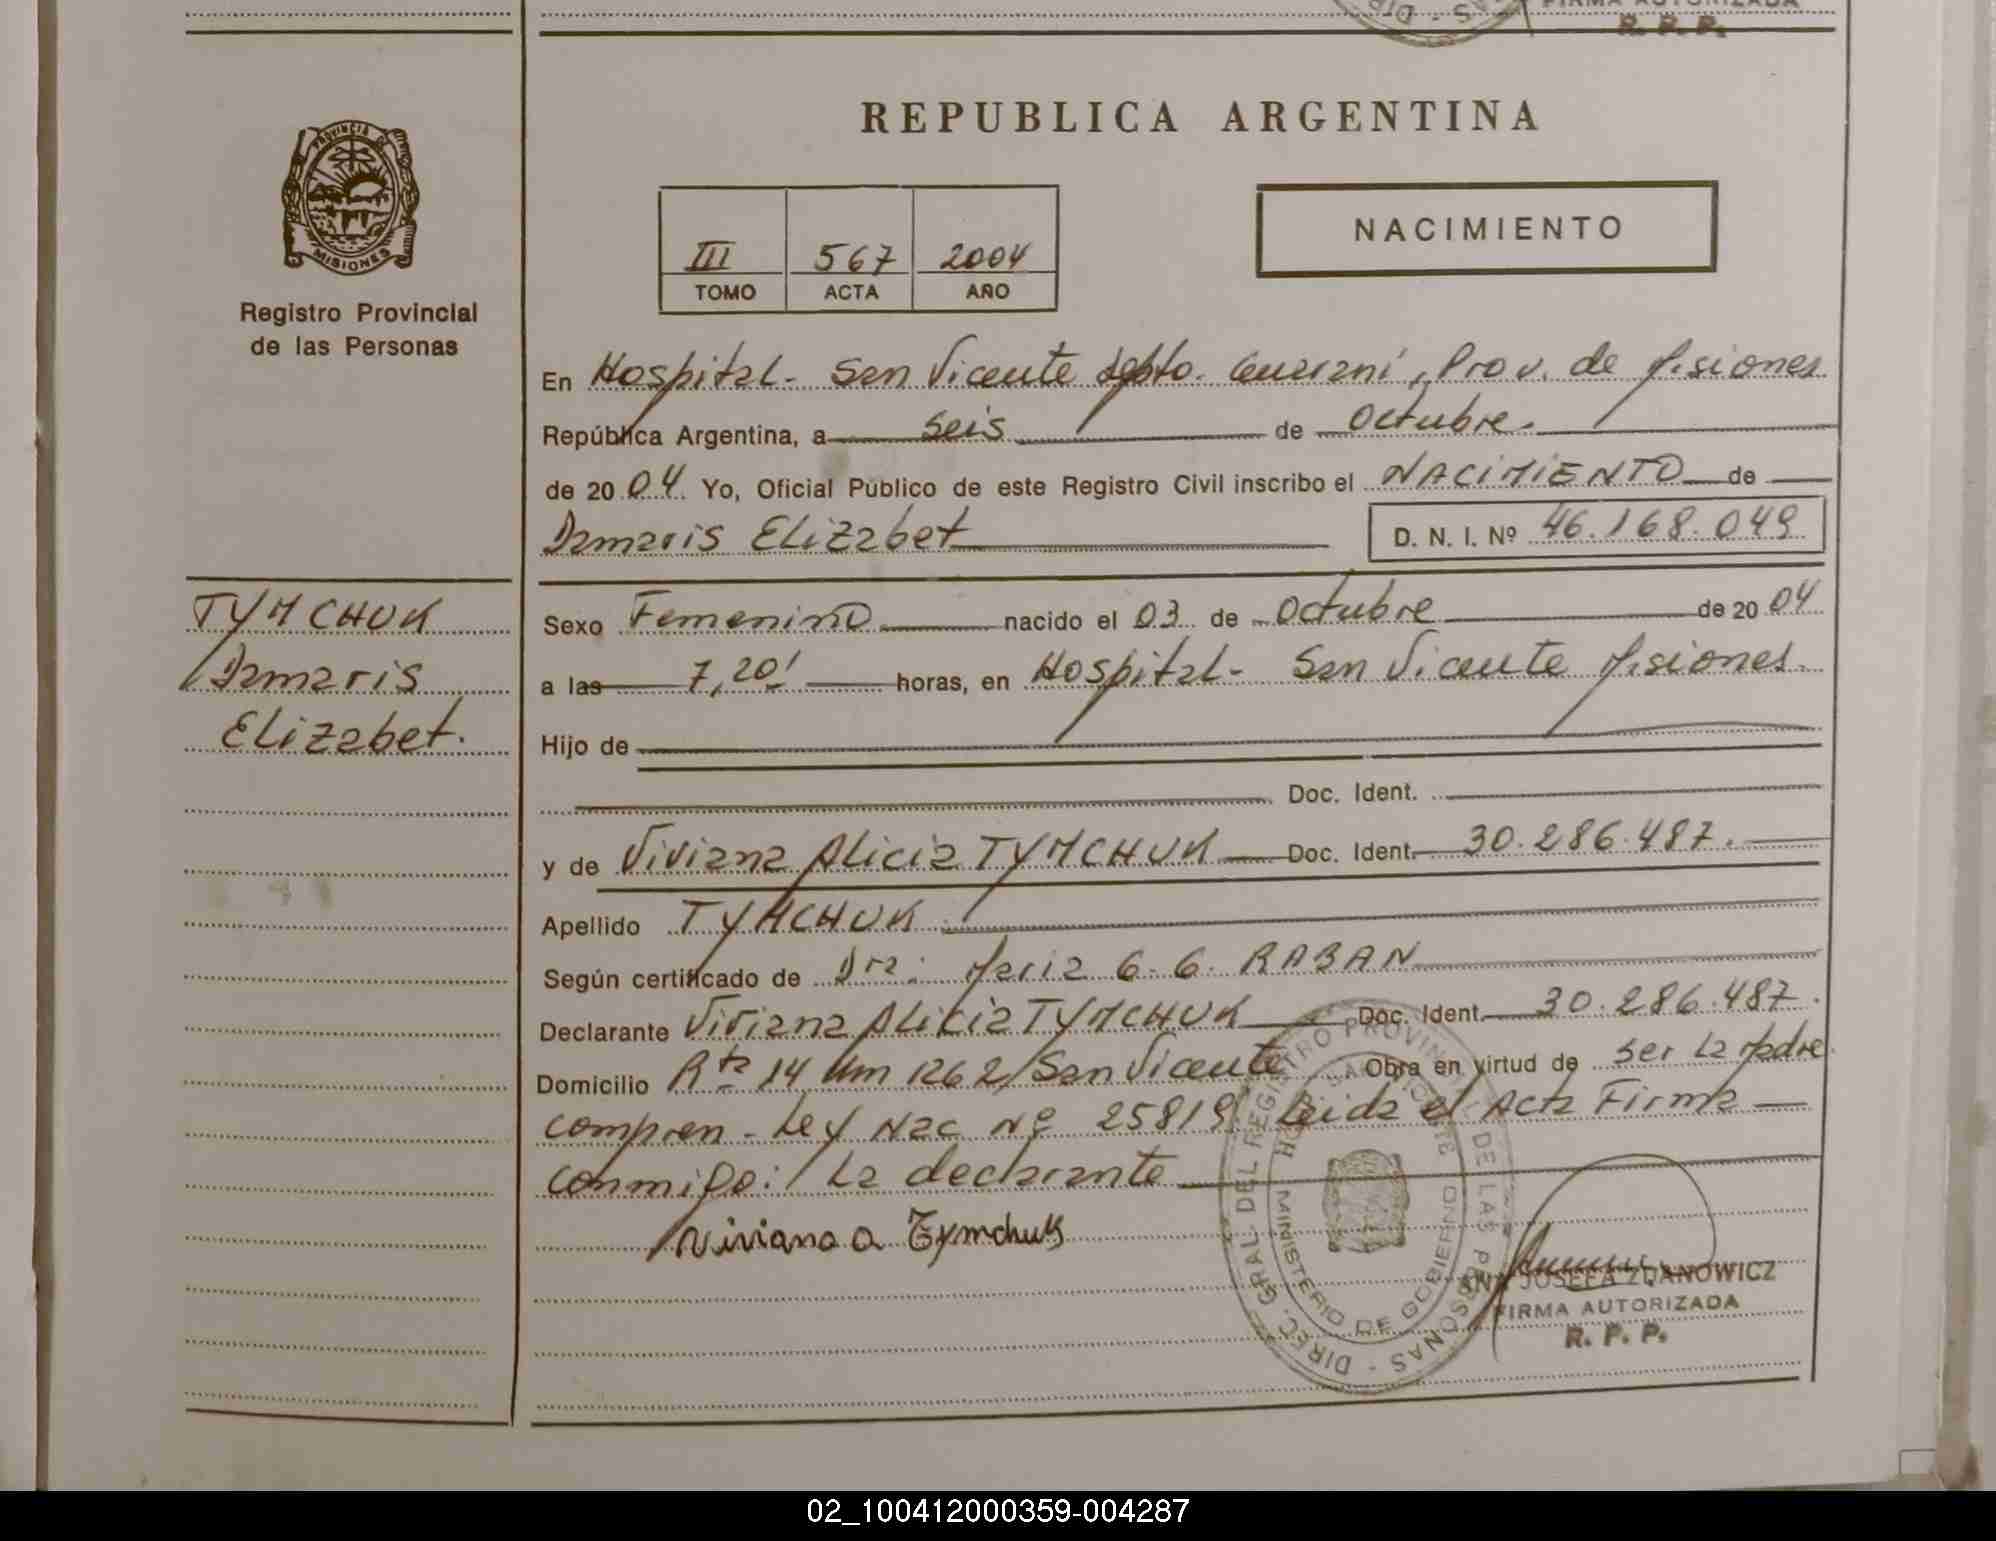 FIRMA AUTORIZADA
R. P. P.
PROVINCIA DE
MISIONES
Registro Provincial
de las Personas
REPUBLICA ARGENTINA
III 567 2004
TOMO ACTA AÑO
NACIMIENTO
En Hospital - San Vicente Depto. Guaraní, Prov. de Misiones
República Argentina, a seis de Octubre.
de 20 04. Yo, Oficial Público de este Registro Civil inscribo el NACIMIENTO de
Damaris Elizabet D. N. I. Nº 46.168.049
TYMCHUK
Damaris
Elizabet.
Sexo Femenino nacido el 03 de Octubre de 20 04
a las 7,20' horas, en Hospital - San Vicente Misiones.
Hijo de
Doc. Ident.
y de Viviana Alicia TYMCHUK Doc. Ident. 30.286.487.
Apellido TYMCHUK
Según certificado de Dra: Maria G. G. RABAN
Declarante Viviana Alicia TYMCHUK Doc. Ident. 30.286.487.
Domicilio Rta 14 Km 1262 San Vicente Obra en virtud de ser la Madre
compren - Ley Nac Nº 25819 Leida el Acta Firma
conmigo: La declarante
Viviana A Tymchuk
DIREC. GRAL DEL REGISTRO PROVINCIAL DE LAS PERSONAS
MINISTERIO DE GOBIERNO
JOSEFA ZDANOWICZ
FIRMA AUTORIZADA
R. P. P.
02_100412000359-004287